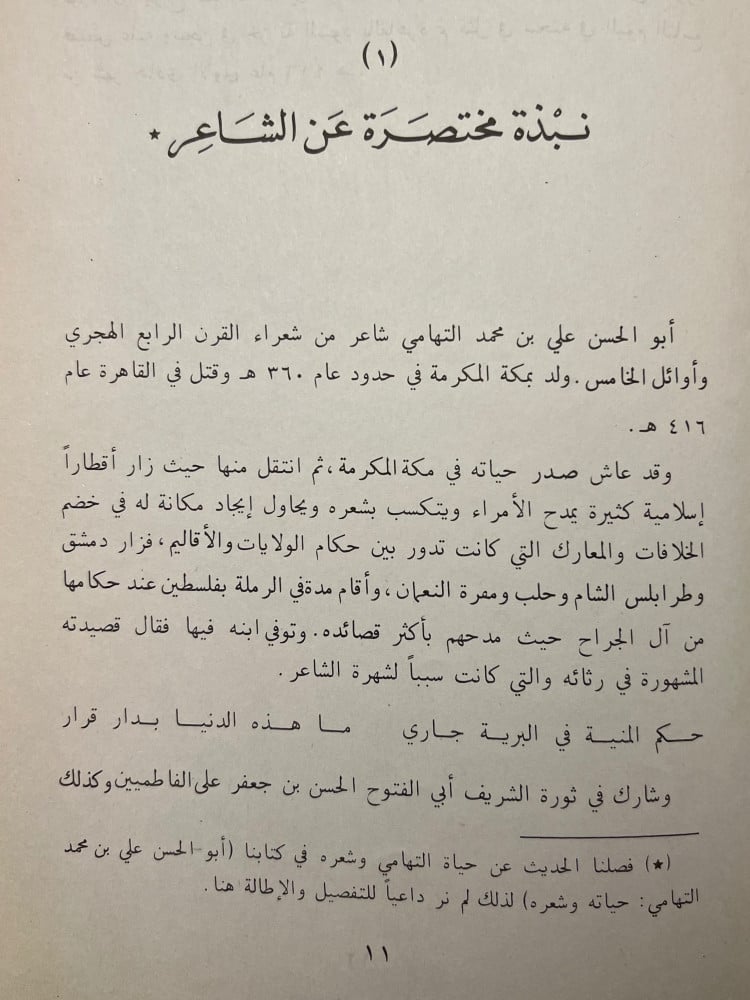 (١)
نبْذة مختصَرَة عَن الشَاعِر *
أبو الحسن علي بن محمد التهامي شاعر من شعراء القرن الرابع الهجري
وأوائل الخامس. ولد بمكة المكرمة في حدود عام ٣٦٠ هـ وقتل في القاهرة عام
٤١٦ هـ.
وقد عاش صدر حياته في مكة المكرمة، ثم انتقل منها حيث زار أقطاراً
إسلامية كثيرة يمدح الأمراء ويتكسب بشعره ويحاول إيجاد مكانة له في خضم
الخلافات والمعارك التي كانت تدور بين حكام الولايات والأقاليم، فزار دمشق
وطرابلس الشام وحلب ومفرة النعمان، وأقام مدة في الرملة بفلسطين عند حكامها
من آل الجراح حيث مدحهم بأكثر قصائده. وتوفي ابنه فيها فقال قصيدته
المشهورة في رثائه والتي كانت سبباً لشهرة الشاعر.
حكم المنية في البرية جاري ما هذه الدنيا بدار قرار
وشارك في ثورة الشريف أبي الفتوح الحسن بن جعفر على الفاطميين وكذلك
(*) فصلنا الحديث عن حياة التهامي وشعره في كتابنا (أبو الحسن علي بن محمد
التهامي: حياته وشعره) لذلك لم نر داعياً للتفصيل والإطالة هنا.
١١